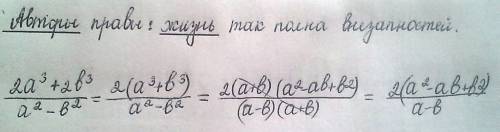 Авторы правы: жизнь так полна внезапностей.
2a³+2b³/a²-b² = 2(a³+b³)/a²-b² = 2(a+b)(a²-ab+b²)/(a-b)(a+b) = 2(a²-ab+b²)/a-b